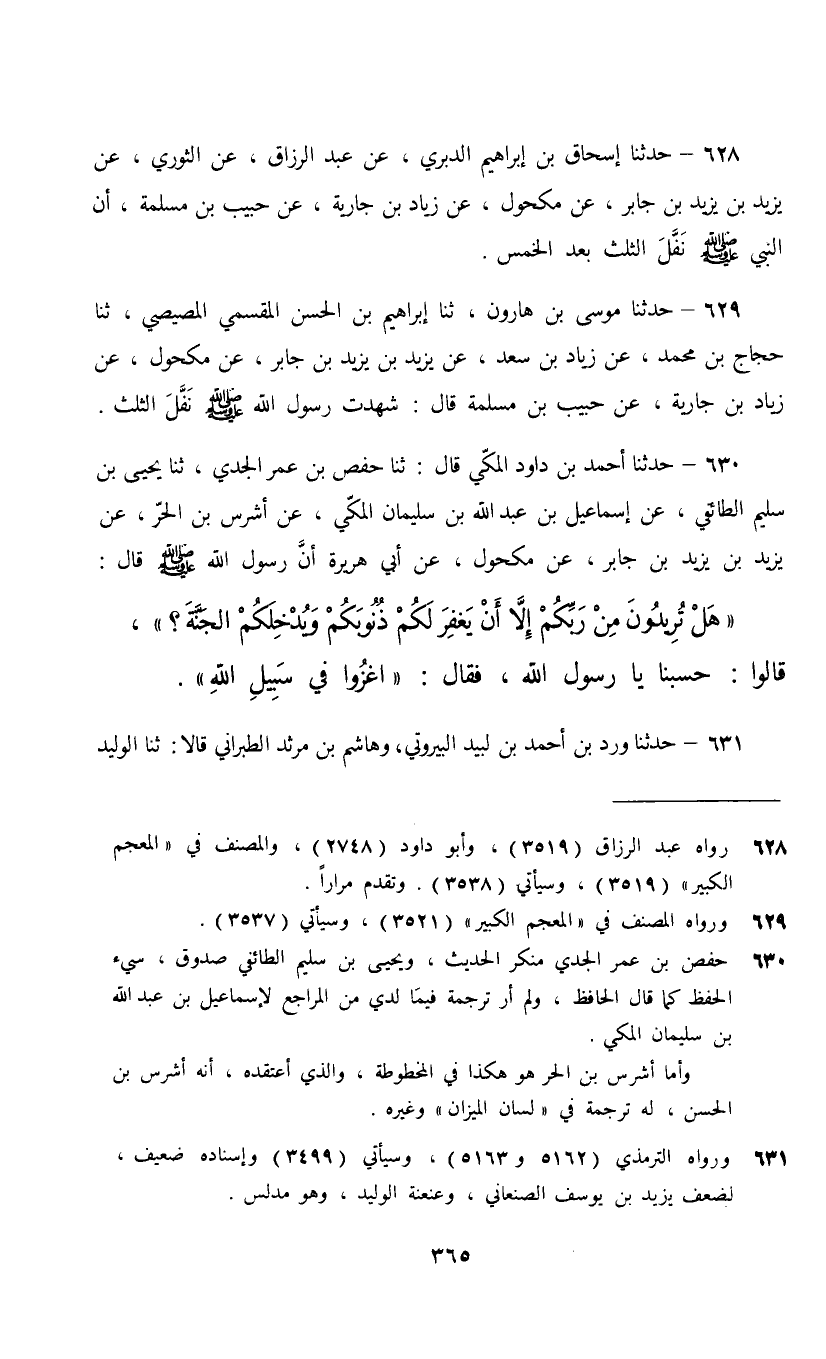 ٦٢٨ – حدثنا إسحاق بن إبراهيم الدبري ، عن عبد الرزاق ، عن الثوري ، عن
يزيد بن يزيد بن جابر ، عن مكحول ، عن زياد بن جارية ، عن حبيب بن مسلمة ، أن
النبي ﷺ نَفَّلَ الثلث بعد الخمس .
٦٢٩ – حدثنا موسى بن هارون ، ثنا إبراهيم بن الحسن المقسمي المصيصي ، ثنا
حجاج بن محمد ، عن زياد بن سعد ، عن يزيد بن يزيد بن جابر ، عن مكحول ، عن
زياد بن جارية ، عن حبيب بن مسلمة قال : شهدت رسول الله ﷺ نَفَّلَ الثلث .
٦٣٠ – حدثنا أحمد بن داود المكّي قال : ثنا حفص بن عمر الجدي ، ثنا يحيى بن
سليم الطائفي ، عن إسماعيل بن عبد الله بن سليمان المكّي ، عن أشرس بن الحرّ ، عن
يزيد بن يزيد بن جابر ، عن مكحول ، عن أبي هريرة أنَّ رسول الله ﷺ قال :
« هَلْ تُرِيدُونَ مِنْ رَبِّكُمْ إِلَّا أَنْ يَغفِرَ لَكُمْ ذُنُوبَكُمْ وَيُدْخِلَكُمْ الجَنَّةَ ؟ » ،
قالوا : حسبنا يا رسول الله ، فقال : « اغزُوا في سَبِيلِ اللّهِ » .
٦٣١ – حدثنا ورد بن أحمد بن لبيد البيروتي، وهاشم بن مرثد الطبراني قالا: ثنا الوليد
٦٢٨ رواه عبد الرزاق (٣٥١٩) ، وأبو داود (٢٧٤٨) ، والمصنف في «المعجم
الكبير» (٣٥١٩) ، وسيأتي (٣٥٣٨) . وتقدم مراراً .
٦٢٩ ورواه المصنف في «المعجم الكبير» (٣٥٢١) ، وسيأتي (٣٥٣٧) .
٦٣٠ حفصن بن عمر الجدي منكر الحديث ، ويحيى بن سليم الطائفي صدوق ، سيء
الحفظ كما قال الحافظ ، ولم أر ترجمة فيمَا لدي من المراجع لإسماعيل بن عبد الله
بن سليمان المكي .
وأما أشرس بن الحر هو هكذا في المخطوطة ، والذي أعتقده ، أنه أشرس بن
الحسن ، له ترجمة في «لسان الميزان» وغيره .
٦٣١ ورواه الترمذي (٥١٦٢ و ٥١٦٣) ، وسيأتي (٣٤٩٩) وإسناده ضعيف ،
لضعف يزيد بن يوسف الصنعاني ، وعنعنة الوليد ، وهو مدلس .
٣٦٥